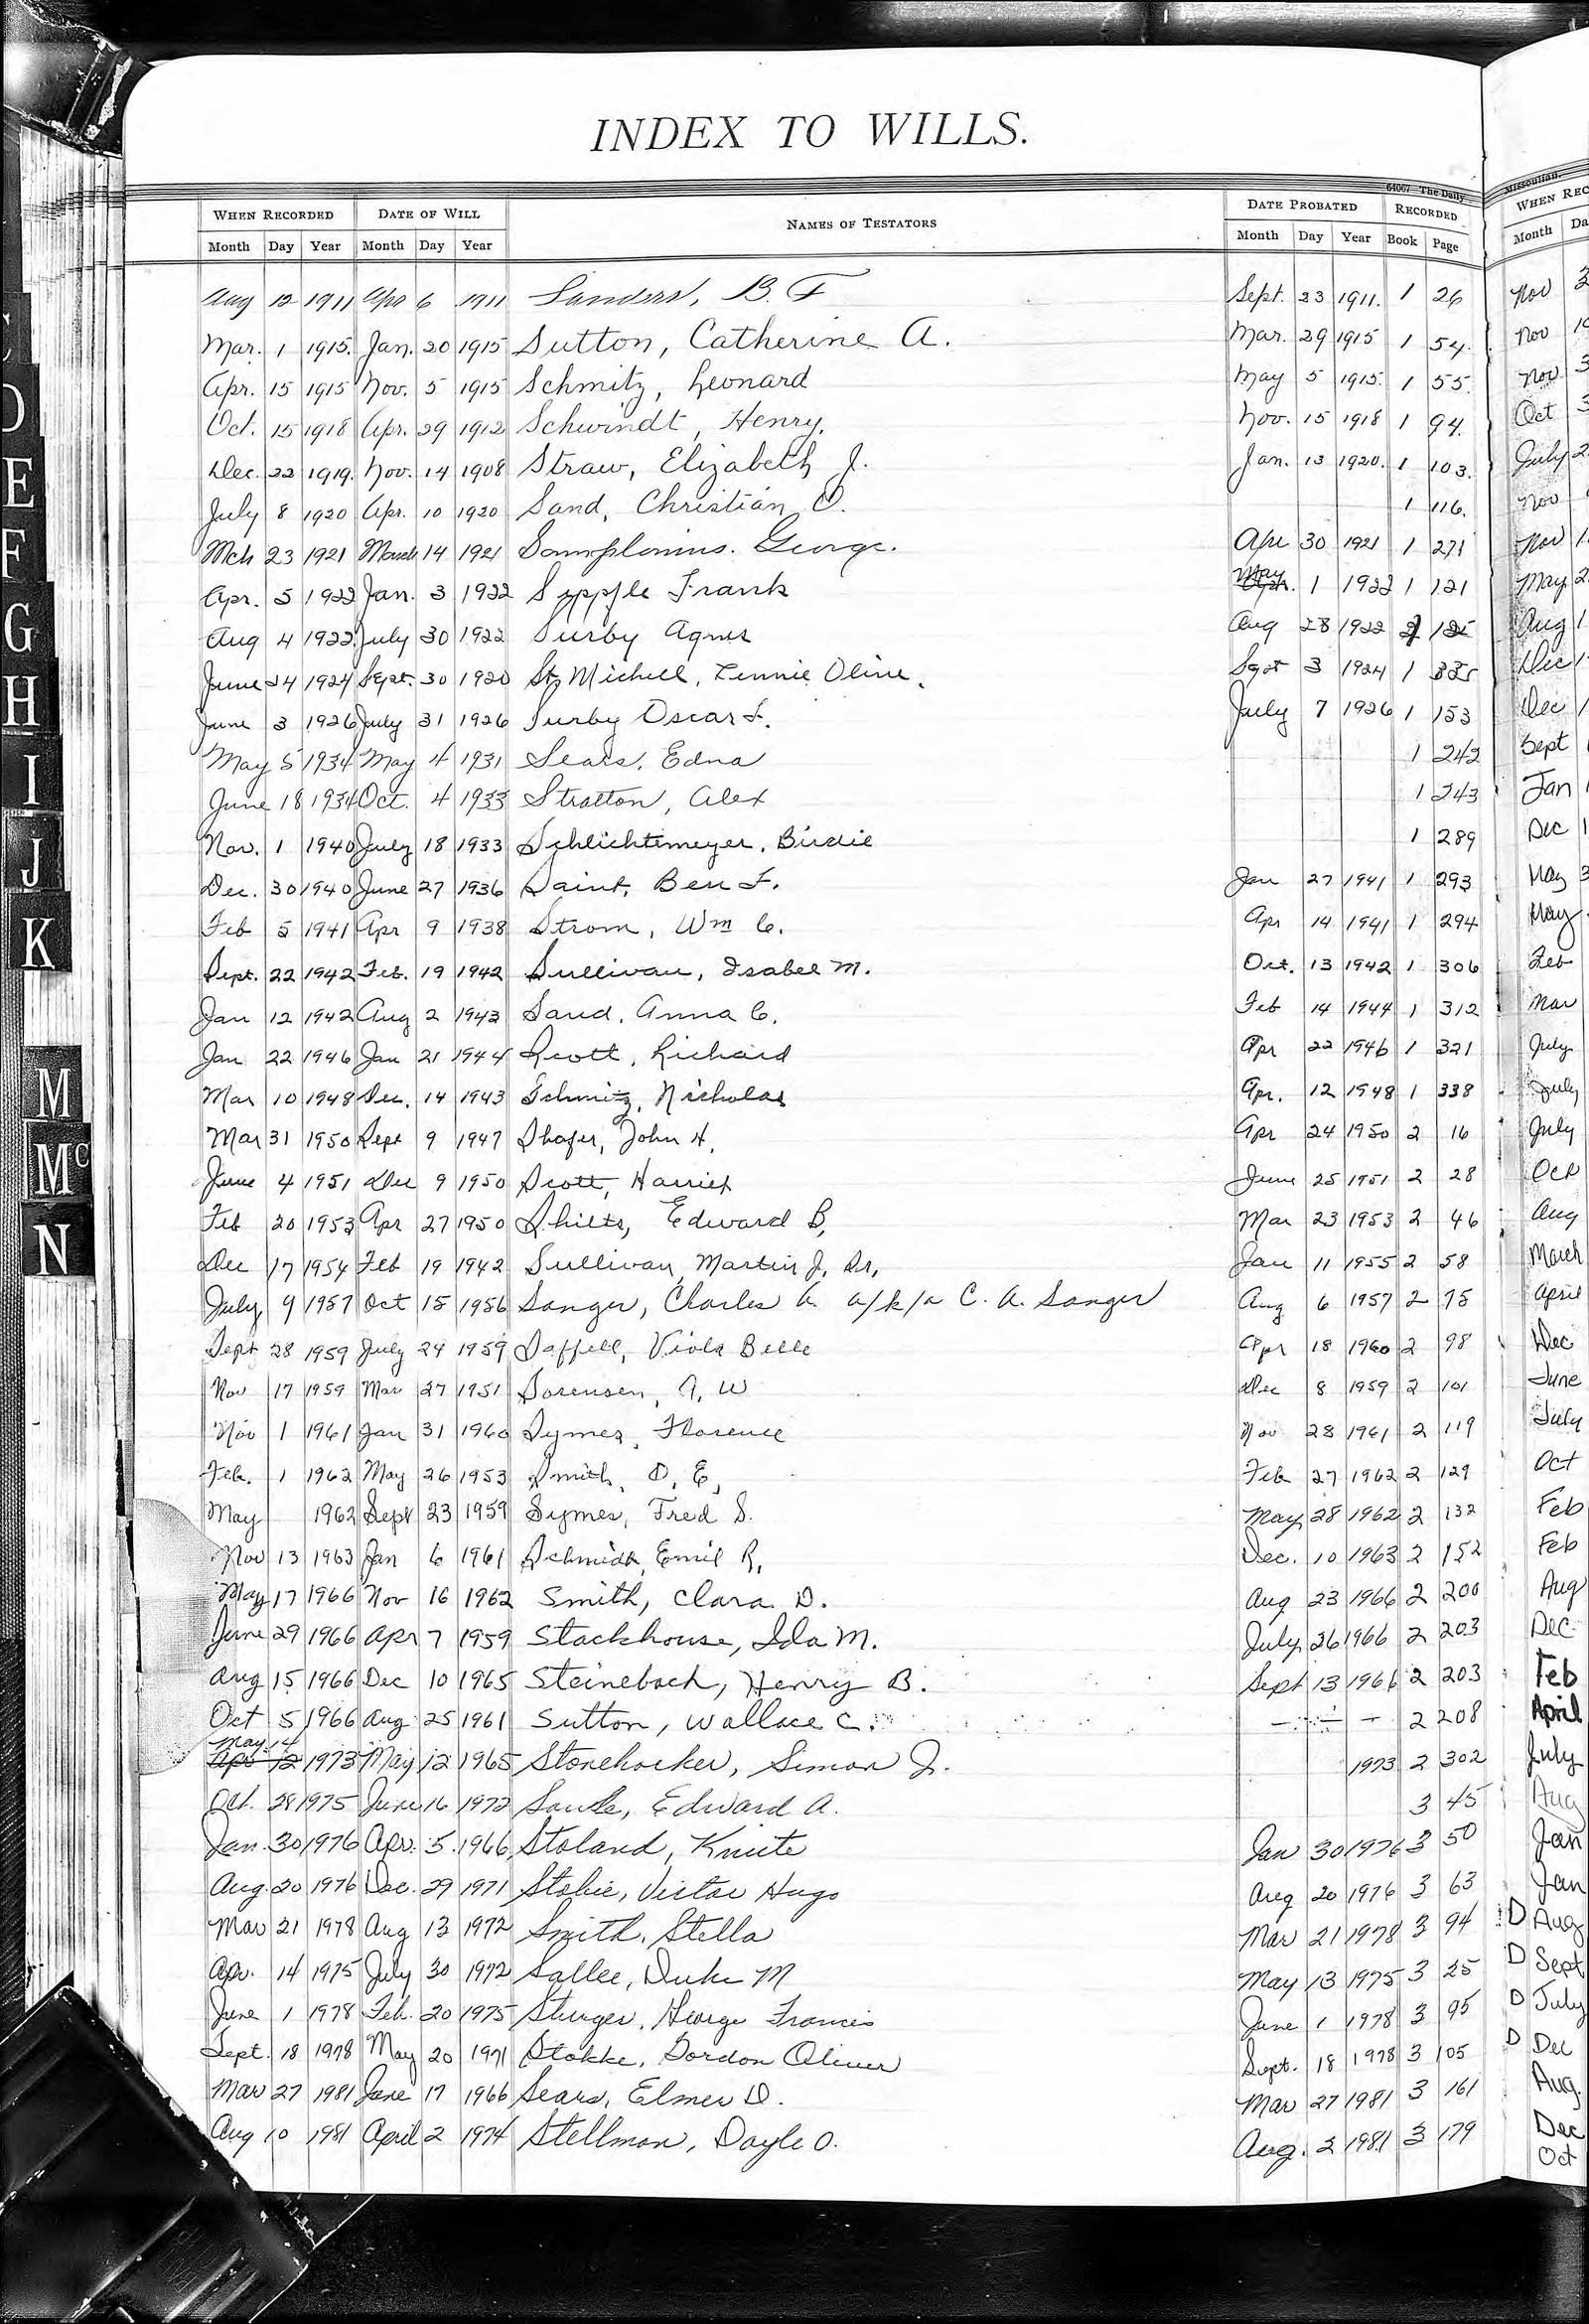 INDEX TO WILLS.
64067 The Daily Missoulian.
WHEN RECORDED DATE OF WILL NAMES OF TESTATORS DATE PROBATED RECORDED WHEN REC
Month Day Year Month Day Year Month Day Year Book Page Month Da
Aug 12 1911 Apr 6 1911 Sanders, B. F Sept. 23 1911. 1 26 Nov
Mar. 1 1915. Jan. 20 1915 Sutton, Catherine A. Mar. 29 1915 1 54. Nov
Apr. 15 1915 Nov. 5 1915 Schmitz, Leonard May 5 1915. 1 55. Nov. 3
Oct. 15 1918 Apr. 29 1912 Schwindt, Henry, Nov. 15 1918 1 94. Oct 3
Dec. 22 1919. Nov. 14 1908 Straw, Elizabeth J. Jan. 13 1920. 1 103. July 2
July 8 1920 Apr. 10 1920 Sand, Christian O. 1 116. Nov
Mch 23 1921 March 14 1921 George. Apr 30 1921 1 271 Nov 1
Apr. 5 1922 Jan. 3 1922 Frank May 1 1922 1 121 May 2
Aug 4 1922. July 30 1922 Surby Agnes Aug 28 1922 Aug 1
June 24 1924 Sept. 30 1920 St Michell, Olive. Sept 3 1924 1 335 Dec 1
June 3 1926 July 31 1926 Surby Oscar F. July 7 1926 1 153 Dec 1
May 5 1934 May 4 1931 Sears, Edna 1 242 Sept
June 18 1934 Oct. 4 1933 Stratton, Alex 1 243 Jan
Nov. 1 1940 July 18 1933 Schlichtemeyer, Birdie 1 289 Dec 1
Dec. 30 1940 June 27 1936 Saint, Ben F. Jan 27 1941 1 293 May 3
Feb 5 1941 Apr 9 1938 Strom, Wm C. Apr 14 1941 1 294 May
Sept. 22 1942 Feb. 19 1942 Sullivan, Isabel M. Oct. 13 1942 1 306 Feb
Jan 12 1942 Aug 2 1943 Sand, Anna C. Feb 14 1944 1 312 Mar
Jan 22 1946 Jan 21 1944 Scott, Richard Apr 22 1946 1 321 July
Mar 10 1948 Dec. 14 1943 Schmitz, Nicholas Apr. 12 1948 1 338 July
Mar 31 1950 Sept 9 1947 Shafer, John H. Apr 24 1950 2 16 July
June 4 1951 Dec 9 1950 Scott, Harriet June 25 1951 2 28 Oct
Feb 20 1953 Apr 27 1950 Shilts, Edward B, Mar 23 1953 2 46 Aug
Dec 17 1954 Feb 19 1942 Sullivan, Martin J, Sr, Jan 11 1955 2 58 March
July 9 1957 Oct 15 1956 Sanger, Charles A. a/k/a C. A. Sanger Aug 6 1957 2 75 April
Sept 28 1959 July 24 1959 Saffell, Viola Belle Apr 18 1960 2 98 Dec
Nov 17 1959 Mar 27 1951 Sorensen, A, W Dec 8 1959 2 101 June
Nov 1 1961 Jan 31 1960 Symes, Florence Nov 28 1961 2 119 July
Feb. 1 1962 May 26 1953 Smith, O, E, Feb 27 1962 2 129 Oct
May 1962 Sept 23 1959 Symes, Fred S. May 28 1962 2 132 Feb
Nov 13 1963 Jan 6 1961 Schmidt, Emil R, Dec. 10 1963 2 152 Feb
May 17 1966 Nov 16 1962 Smith, Clara D. Aug 23 1966 2 200 Aug
June 29 1966 Apr 7 1959 Stackhouse, Ida M. July 26 1966 2 203 Dec
Aug 15 1966 Dec 10 1965 Steinebach, Henry B. Sept 13 1966 2 203 Feb
Oct 5 1966 Aug 25 1961 Sutton, Wallace C. — — — 2 208 April
May 14
Apr 12 1973 May 12 1965 Stonehocker, Simon J. 1973 2 302 July
Oct. 28 1975 June 16 1972 Edward A. 3 45 Aug
Jan. 30 1976 Apr. 5. 1966 Stoland, Knute Jan 30 1976 3 50 Jan
Aug. 20 1976 Dec. 29 1971 Stobie, Victor Hugo Aug 20 1976 3 63 Jan
Mar 21 1978 Aug 13 1972 Smith, Stella Mar 21 1978 3 94 D Aug
Apr. 14 1975 July 30 1972 Sallee, Duke M May 13 1975 3 25 D Sept
June 1 1978 Feb. 20 1975 George Francis June 1 1978 3 95 D July
Sept. 18 1978 May 20 1971 Stokke, Gordon Oliver Sept. 18 1978 3 105 D Dec
Mar 27 1981 June 17 1966 Sears, Elmer D. Mar 27 1981 3 161 Aug.
Aug 10 1981 April 2 1974 Stellmon, Dayle O. Aug. 2 1981 3 179 Dec
Oct
D
E
F
G
H
I
J
K
M
Mc
N